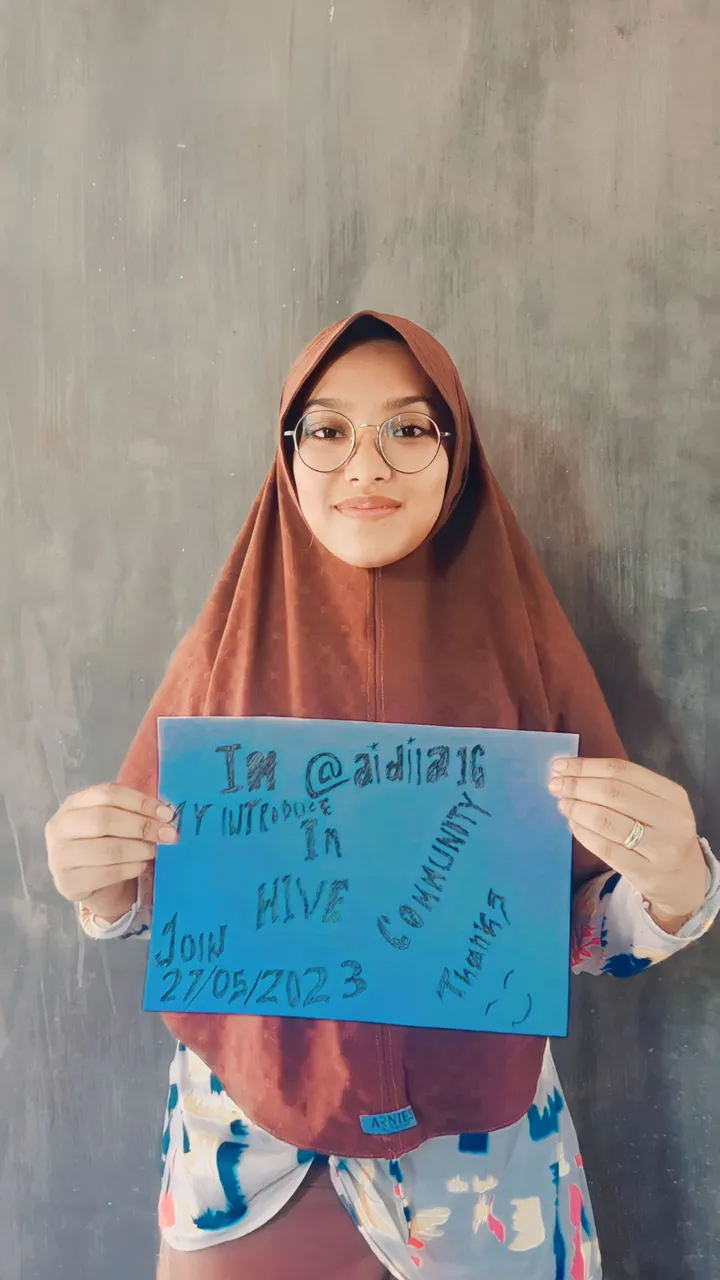 Im @aidiia16
MY INTRODUCE
In
HIVE
COMMUNITY
JOIN
27/05/2023
Thanks